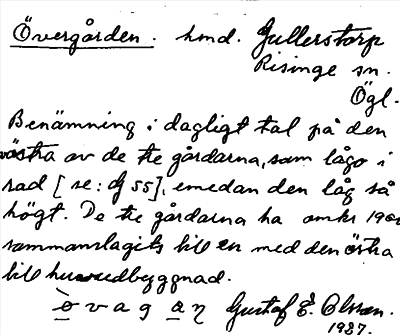 Övergården. hmd. Gullerstorp
Risinge sn.
Ögl.
Benämning i dagligt tal på den
västra av de tre gårdarna, som lågo i
rad [se: dj 55], emedan den låg så
högt. De tre gårdarna ha omkr 190
sammanslagits till en med den östra
till huvudbyggnad.
ò v a g a η Gustaf E. Olsson.
1937.